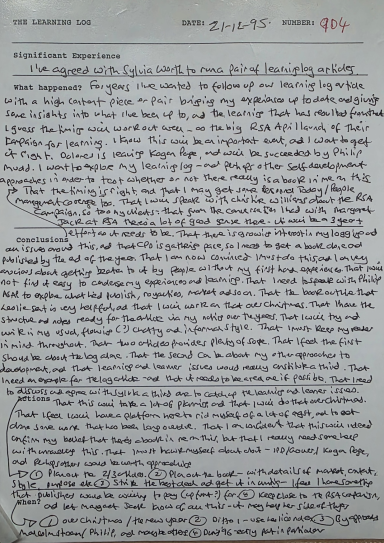 THE LEARNING LOG DATE: 21-12-95. NUMBER: 904
Significant Experience
I've agreed with Sylvia Worth to run a pair of learning log articles.
What happened? For years I've wanted to follow up our learning log article
with a high content piece or pair bringing my experiences up to date and giving
some insights into what I've been up to, and the learning that has resulted from that
I guess the timing will work out even - as the big RSA April launch of their
campaign for learning. I know this will be an important event, and I want to get
it right. Dolores is leaving Kogan Page, and will be succeeded by Philip
Mudd. I want to replace my learning log - and perhaps other self development
approaches in order to test whether or not there really is a book in me on this
→ That the timing is right, and that I may get some Today/People
Management coverage too. That I will speak with Christine Williams about the RSA
Campaign, so too my visions - that from the conversation I had with Margaret
at RSA there's a lot of good sense there - it will be 3 years
left for it needs to be. That there is growing interest in my logging and
Conclusions
an issue around this, and that CPD is gathering pace, so I need to get a book done and
published by the end of the year. That I am now convinced I must do this, and I am very
anxious about getting beaten to it by people without my first hand experiences. That I will
not find it easy to condense my experiences and learning. That I need to speak with Philip
ASAP to explore what he'd publish, royalties, market and so on. That the book outline that
set is very helpful, and that I will work on that over Christmas. That I have the
structure and notes ready for the article via my notes over the years. That I will try and
write in my usual, flowing (?) chatty and informal style. That I must keep my reader
in mind throughout. That two articles provides plenty of scope. That I feel the first
should be about the log alone. That the second can be about my other approaches to
development, and that learning and learner issues would really constitute a third. That
I need an example for the log article - and that it needs to be as real as possible. That I need
to discuss and agree with Sylvia a third are to catch up the learning and learner issues.
Actions That this will take a lot of planning and that I will do that over Christmas.
That I feel I will have a platform here to rid myself of a lot of angst, and to get
done some work that has been long overdue. That I am confident that this will indeed
confirm my belief that there's a book in me on this, but that I really need some help
with unravelling this. That I must bank myself about it - IPD/Gower/Kogan Page,
and perhaps others would be worth approaching
→ ① Plan out the 2/3 articles. ② Plan out the book - with details of market, content,
style, purpose etc ③ Strike the best deal and get it in writing - if I have something
that published would be willing to pay (up front?) for ④ Keep close to the RSA campaign,
and let Margaret know of all this - it may help her side of things
When?
→ ① Over Christmas / to new year ② Ditto - ③ By approach
Malcolm / Philip, and maybe others ④ During 96 really but in particular